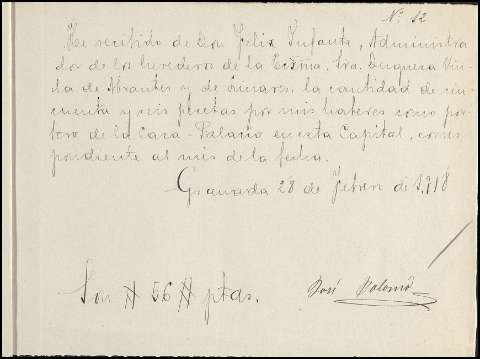 Nº 12
He recibido de Don Felix Infante, Administra
dor de los herederos de la Excma. Sra. Duquesa Viu
da de Abrantes y de Linares, la cantidad de cin
cuenta y seis pesetas por mis haberes como por
tero de la Casa-Palacio en esta Capital, corres
pondiente al mes de la fecha.
Granada 28 de Febrero de 1918
Son # 56 # ptas.
José Palomo